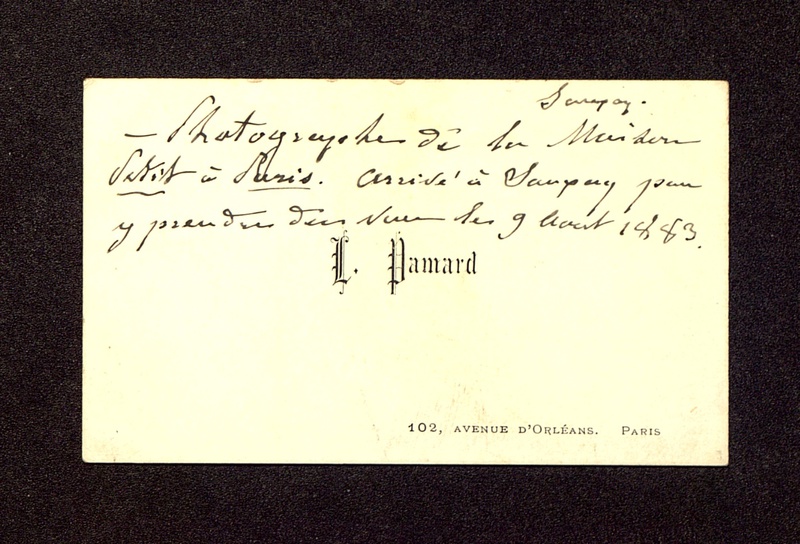 Sanxay.
– Photographe de la Maison
Petit à Paris. arrivé à Sanxay pour
y prendre des vues le 9 Aout 1883.
L. Pamard
102, AVENUE D'ORLÉANS. PARIS